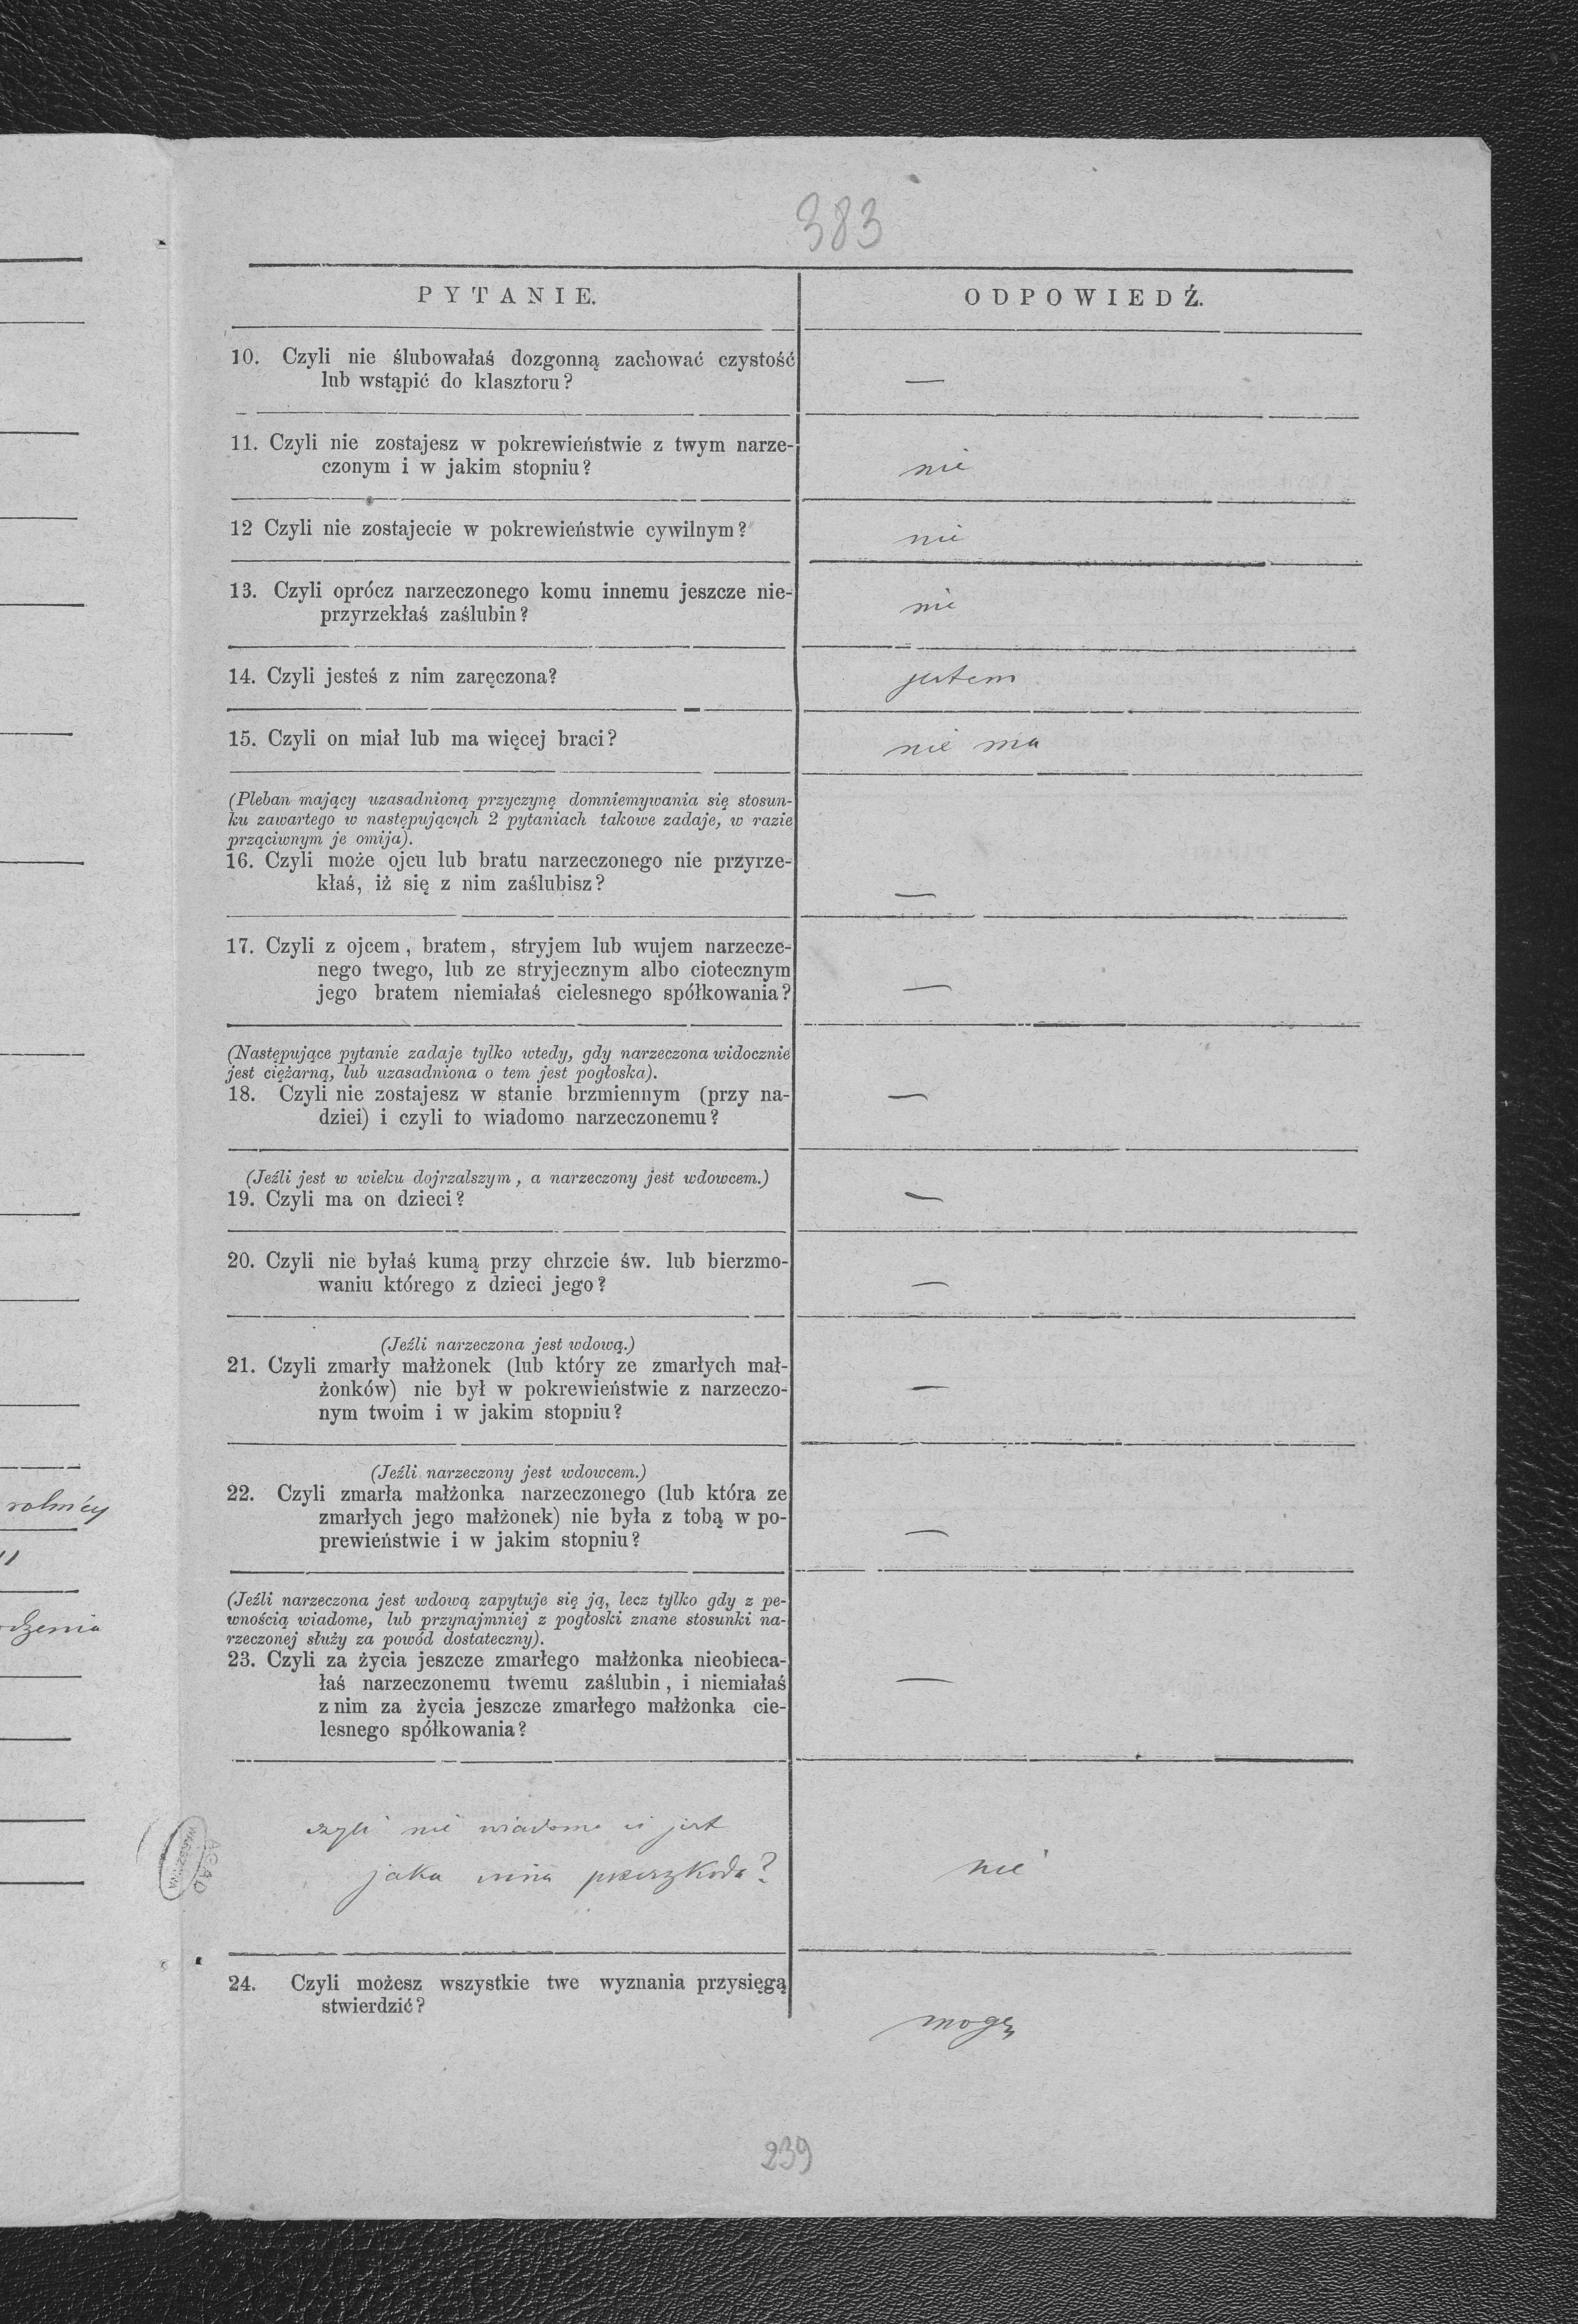 383
PYTANIE.
ODPOWIEDŹ.
10. Czyli nie ślubowałaś dozgonną zachować czystość
lub wstąpić do klasztoru?
—
11. Czyli nie zostajesz w pokrewieństwie z twym narze-
czonym i w jakim stopniu?
nie
12 Czyli nie zostajecie w pokrewieństwie cywilnym?
nie
13. Czyli oprócz narzeczonego komu innemu jeszcze nie-
przyrzekłaś zaślubin?
nie
14. Czyli jesteś z nim zaręczona?
jestem
15. Czyli on miał lub ma więcej braci?
nie ma
(Pleban mający uzasadnioną przyczynę domniemywania się stosun-
ku zawartego w następujących 2 pytaniach takowe zadaje, w razie
prząciwnym je omija).
16. Czyli może ojcu lub bratu narzeczonego nie przyrze-
kłaś, iż się z nim zaślubisz?
—
17. Czyli z ojcem, bratem, stryjem lub wujem narzecze-
nego twego, lub ze stryjecznym albo ciotecznym
jego bratem niemiałaś cielesnego spółkowania?
—
(Następujące pytanie zadaje tylko wtedy, gdy narzeczona widocznie
jest ciężarną, lub uzasadniona o tem jest pogłoska).
18. Czyli nie zostajesz w stanie brzmiennym (przy na-
dziei) i czyli to wiadomo narzeczonemu?
—
(Jeźli jest w wieku dojrzalszym, a narzeczony jest wdowcem.)
19. Czyli ma on dzieci?
—
20. Czyli nie byłaś kumą przy chrzcie św. lub bierzmo-
waniu którego z dzieci jego?
—
(Jeźli narzeczona jest wdową.)
21. Czyli zmarły małżonek (lub który ze zmarłych mał-
żonków) nie był w pokrewieństwie z narzeczo-
nym twoim i w jakim stopniu?
—
(Jeźli narzeczony jest wdowcem.)
22. Czyli zmarła małżonka narzeczonego (lub która ze
zmarłych jego małżonek) nie była z tobą w po-
prewieństwie i w jakim stopniu?
—
(Jeźli narzeczona jest wdową zapytuje się ją, lecz tylko gdy z pe-
wnością wiadome, lub przynajmniej z pogłoski znane stosunki na-
rzeczonej służy za powód dostateczny).
23. Czyli za życia jeszcze zmarłego małżonka nieobieca-
łaś narzeczonemu twemu zaślubin, i niemiałaś
z nim za życia jeszcze zmarłego małżonka cie-
lesnego spółkowania?
—
czyli nie wiadomo ci jest
jaka inna przeszkoda?
nie
24. Czyli możesz wszystkie twe wyznania przysięgą
stwierdzić?
mogę
239
rolnicy
AGAD